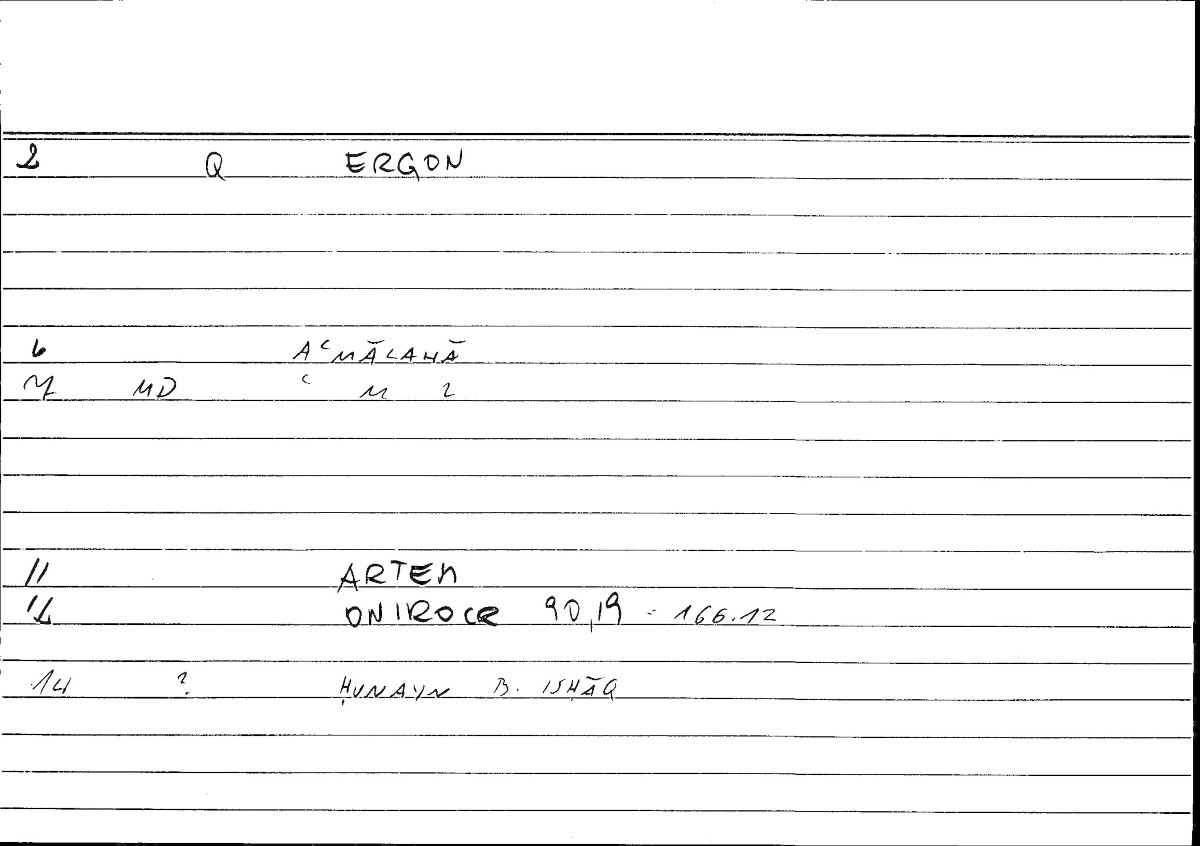 2 Q ERGON
6 AʿMĀLAHĀ
7 MD ʿ M 2
11 ARTEM
12 ONIROCR 90,19 = 166.12
14 ? ḤUNAYN B. ISḤĀQ